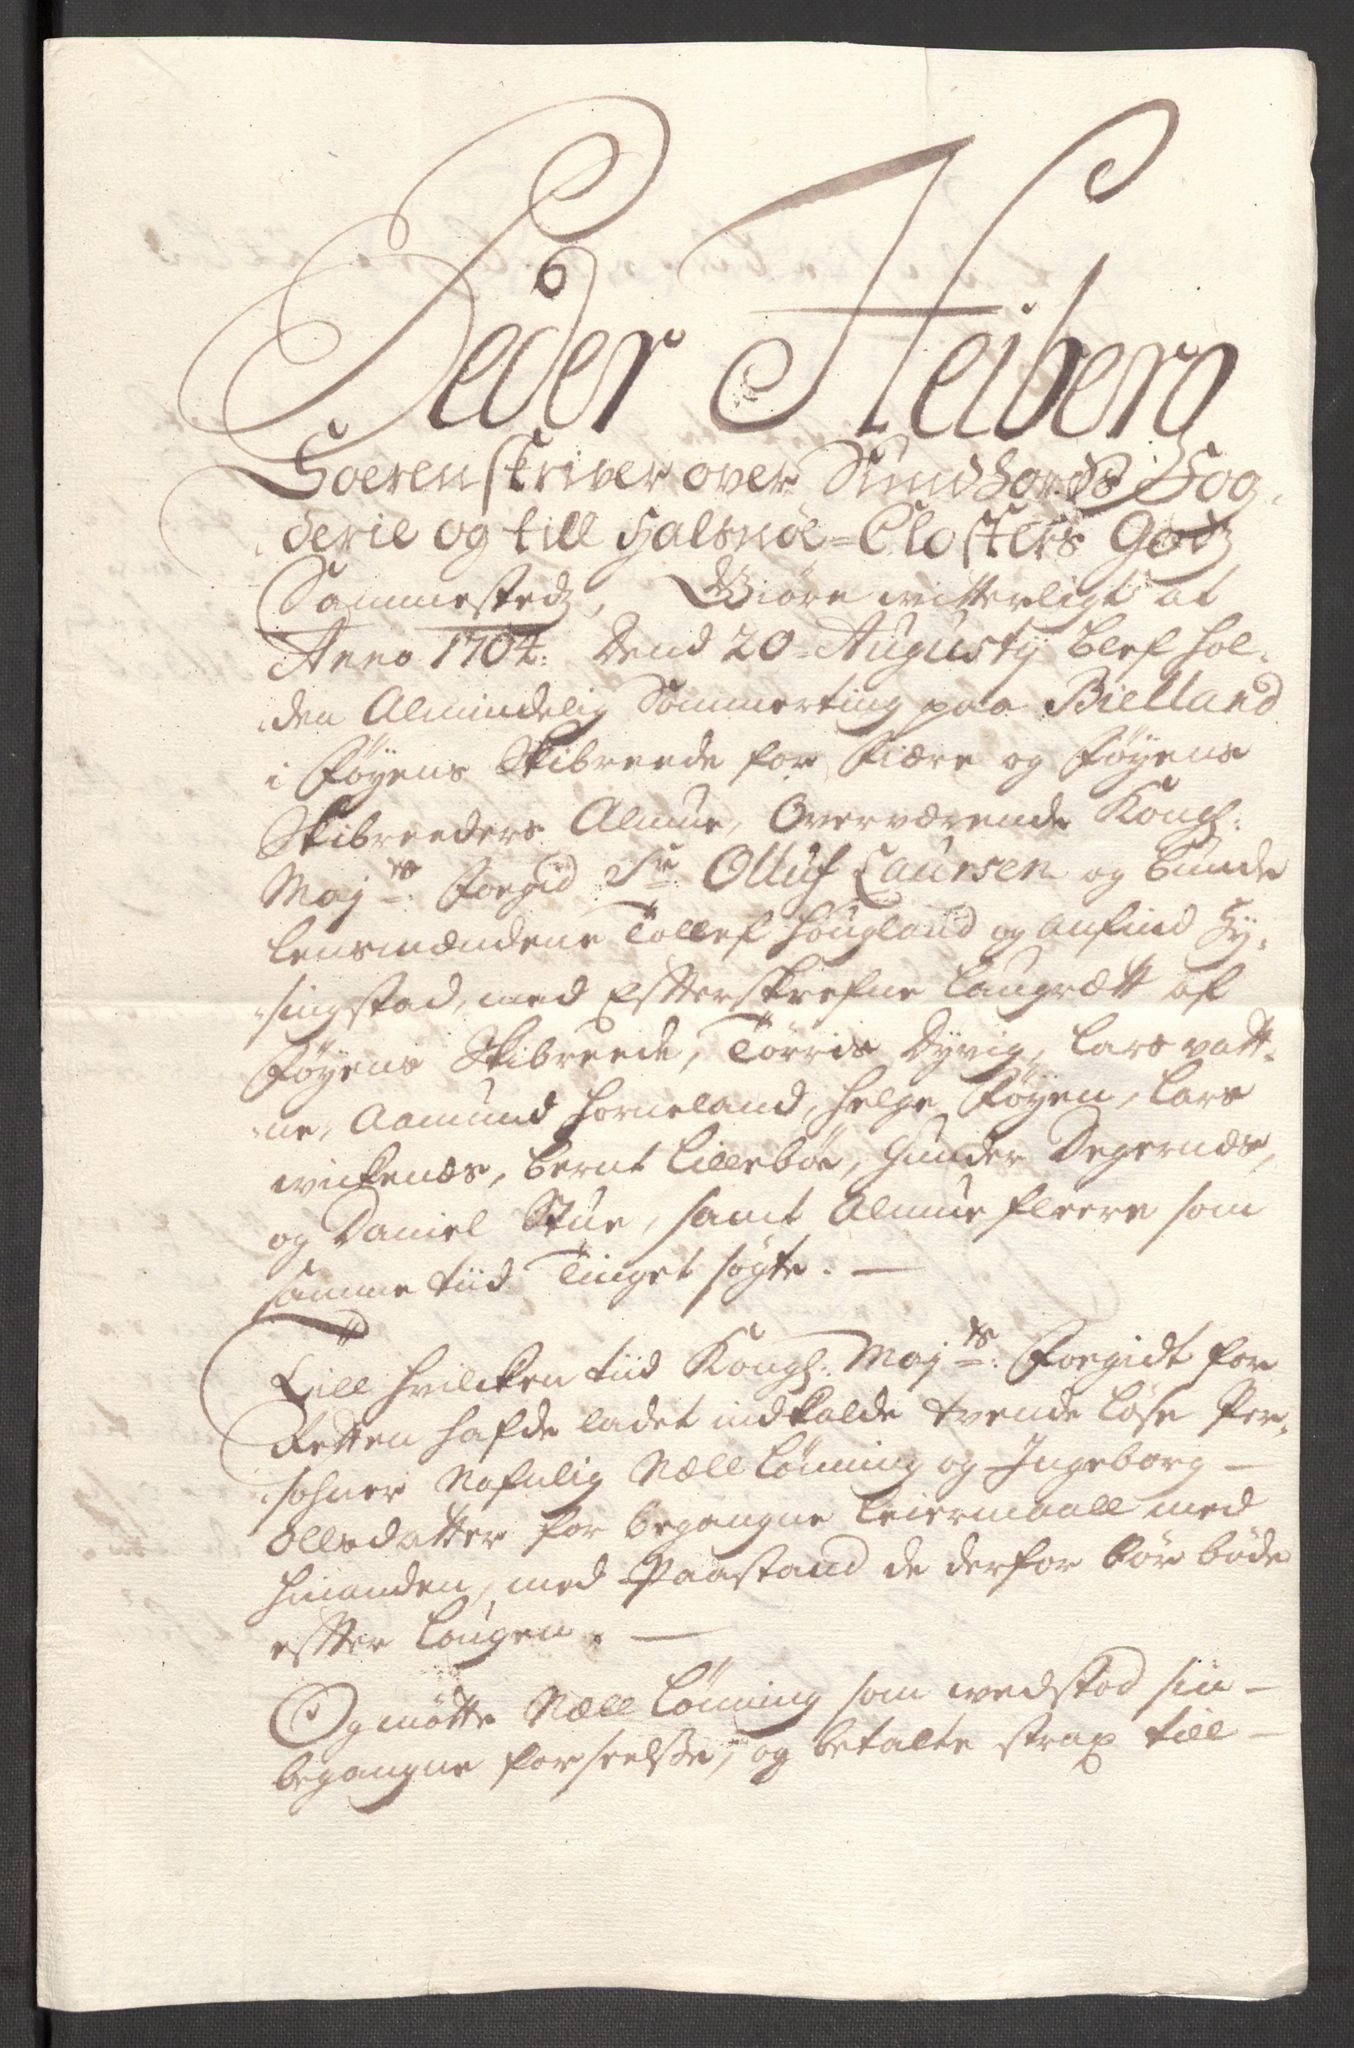 Peder Heiberg
Soerenskriver over Sundhords Fog-
derie og till Halsnöe-Closters Godz
Sammestedz, Giöre witterligt at
Anno 1704. Dend 20 Augusty blef hol-
den Almindelig Sommerting paa Bielland
i Föyens Skibreede for Fiære og Föyens
Skibreeders Almue, Overværende Kongl:
Maj:ts Foegid Sr. Olluf Laursen og bunde
lensmændene Tollef Hougland og Anfind Hy-
singstad, med Efterskrefne Laugrætt af
Föyens Skibreede, Törris Dyvig, Lars Vatt-
ne, Aamund Horneland, Helge Föyen, Lars
Wickenæs, Bernt Lilleböe, Gunder Degernæs,
og Daniel Stue, samt Almue fleere som
samme tiid Tinget sögte. —
Till hvilcken tiid Kongl: Maj:ts Foegidt for
Retten hafde ladet indkalde tvende löse Per-
sohner Nafnlig Næll Lönning og Ingeborg —
Ollsdatter for begangne Leiermaall med
hinanden, med Paastand de derfor bör böde
efter Lougen. —
Og mötte Næll Lönning som wedstod sin —
begangne forseelse, og betalte strax till —